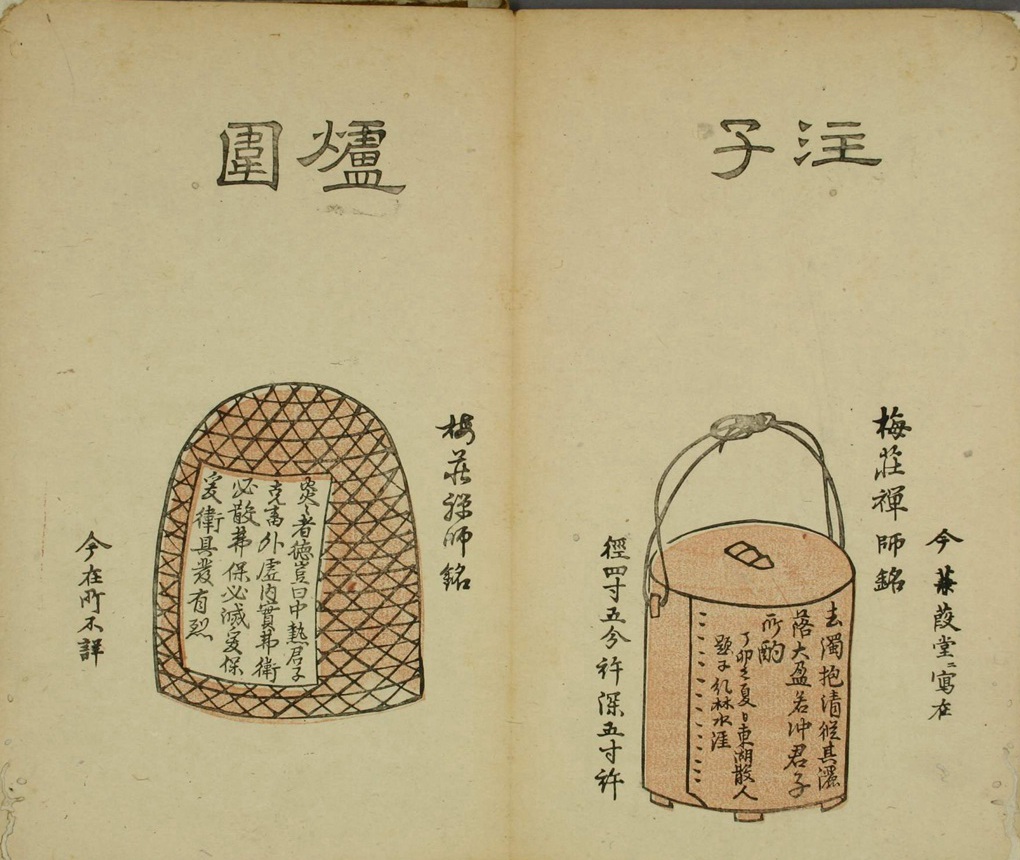 注子
今蒹葭堂ニ寫在
梅莊禪師銘
去濁抱清從其灑
落大盈若冲君子
所酌
丁卯之夏日東湖散人
題于仁林水涯
徑四寸五分許深五寸許
爐圍
梅莊禪師銘
炎者德豈曰中熱君子
克禽外虛内實弗衛
必散弗保必滅爰保
爰衛具發有烈
今在所不詳